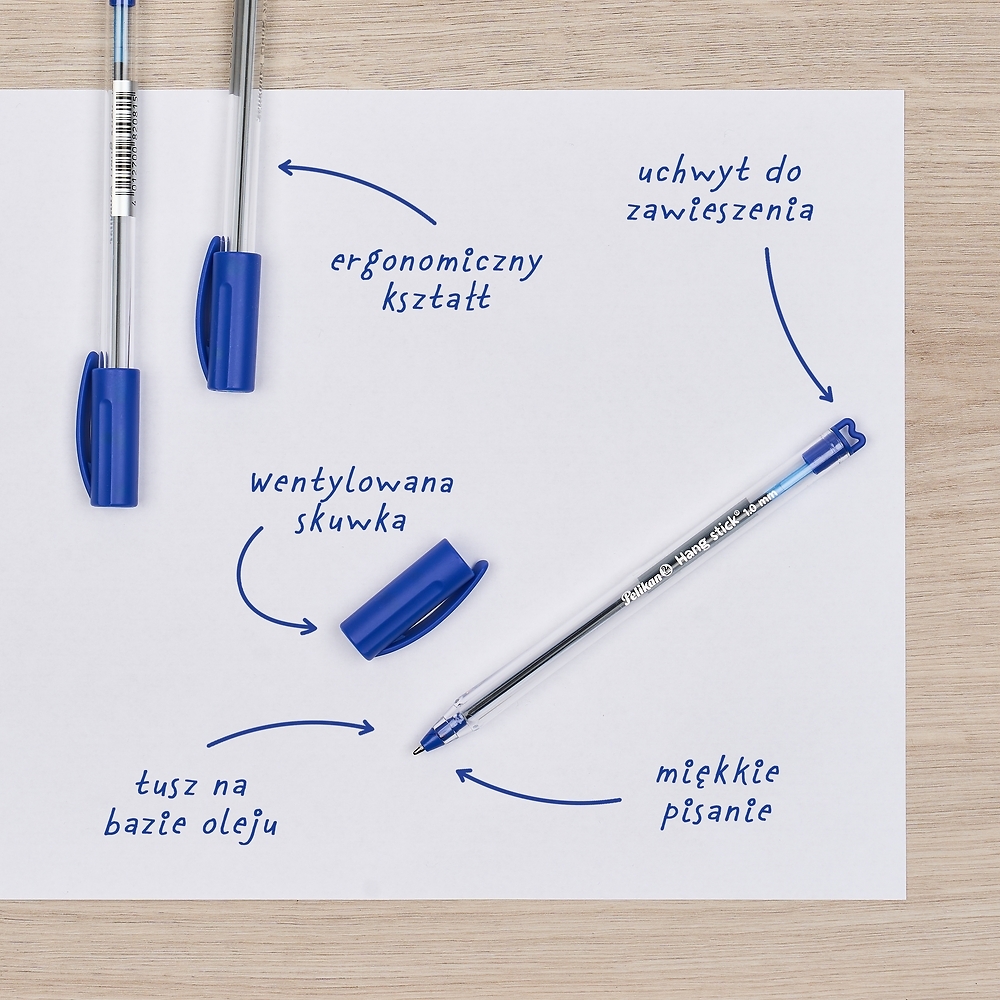 4012700820815
uchwyt do
zawieszenia
ergonomiczny
kształt
wentylowana
skuwka
Pelikan Hang-stick® 1.0 mm
tusz na
bazie oleju
miękkie
pisanie